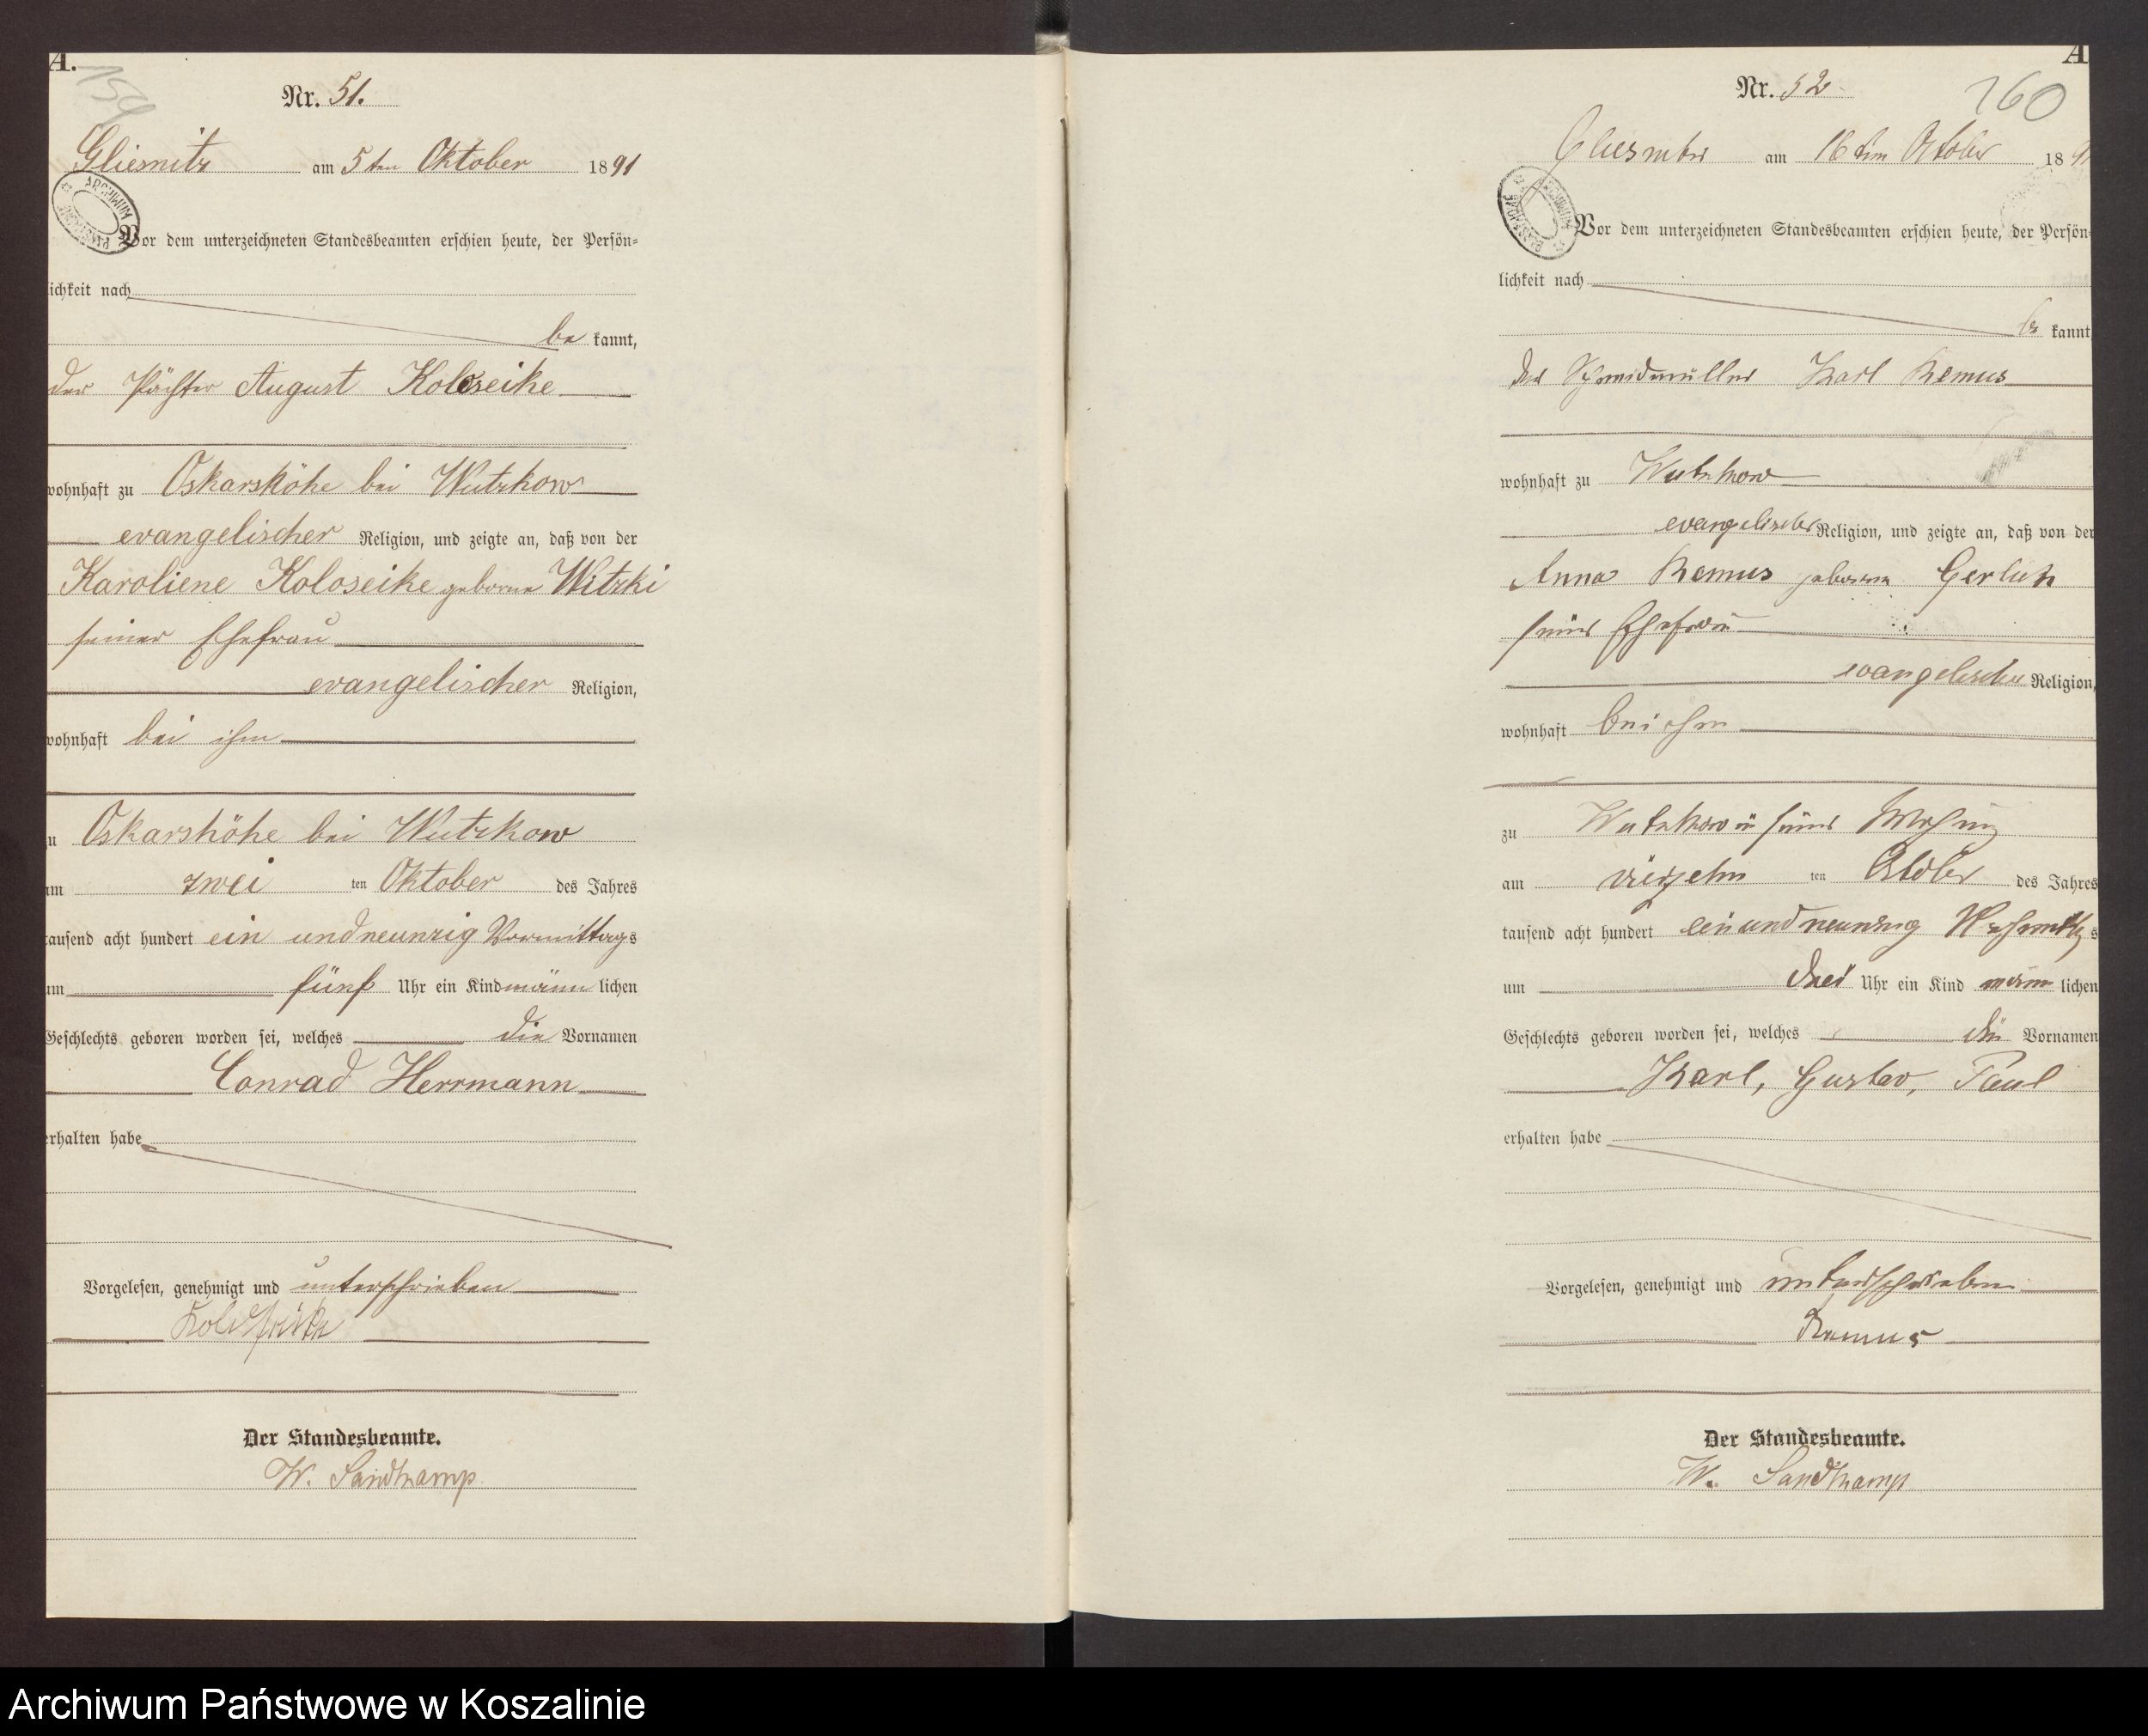 A.
159
Nr. 51.
Gliesnitz am 5ten Oktober 1891
ARCHIWUM
Vor dem unterzeichneten Standesbeamten erschien heute, der Persön=
lichkeit nach
be kannt,
der Pächter August Koloseike
wohnhaft zu Oskarshöhe bei Wutzkow
evangelischer Religion, und zeigte an, daß von der
Karoliene Koloseike geborne Witzki
seiner Ehefrau
evangelischer Religion,
wohnhaft bei ihm
zu Oskarshöhe bei Wutzkow
am zwei ten Oktober des Jahres
tausend acht hundert ein undneunzig Vormittags
um fünf Uhr ein Kind männ lichen
Geschlechts geboren worden sei, welches die Vornamen
Conrad Herrmann
erhalten habe
Vorgelesen, genehmigt und unterschrieben
Koloseike
Der Standesbeamte.
W. Sandkamp
A
160
Nr. 52
Gliesnitz am 16ten Oktober 189
ARCHIWUM
Vor dem unterzeichneten Standesbeamten erschien heute, der Persön=
lichkeit nach
be kannt
der Schneidemüller Karl Remus
wohnhaft zu Wutzkow
evangelischer Religion, und zeigte an, daß von der
Anna Remus geborene Gerlich
seiner Ehefrau
evangelischer Religion,
wohnhaft bei ihm
zu Wutzkow in seiner Wohnung
am vierzehn ten Oktober des Jahres
tausend acht hundert ein und neunzig Nachmittags
um drei Uhr ein Kind männ lichen
Geschlechts geboren worden sei, welches die Vornamen
Karl, Gustav, Paul
erhalten habe
Vorgelesen, genehmigt und unterschrieben
Remus
Der Standesbeamte.
W. Sandkamp
Archiwum Państwowe w Koszalinie